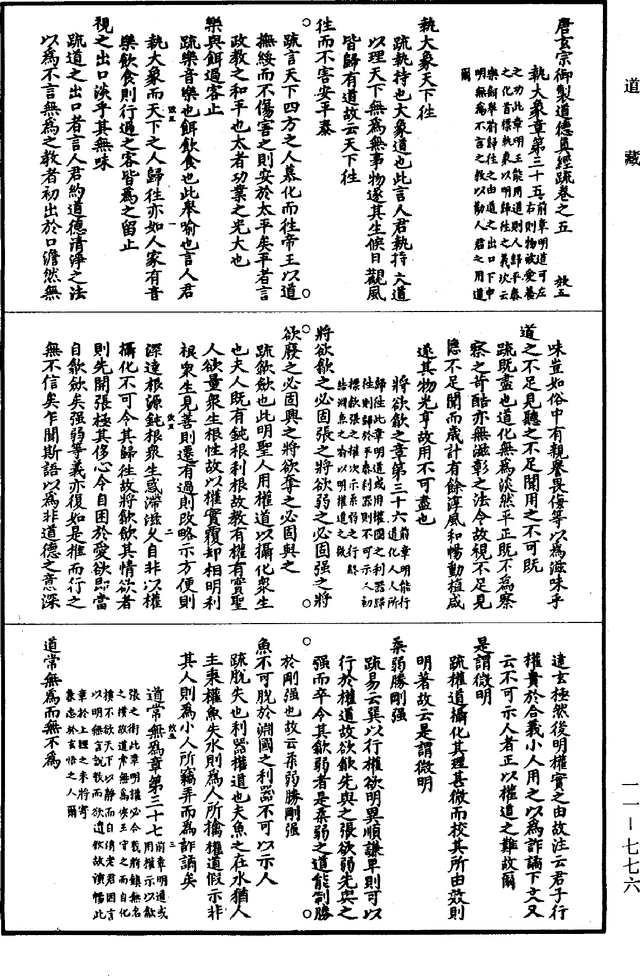 道藏
唐玄宗御製道德真經疏卷之五 放五
執大象章第三十五前章明道可左右則物被愛養
之功此章明王能用道則人歸平泰
之化首標執象以明之歸往之義次云
樂餌舉前歸往之由道之出口下申
明無為不言之教以勸人君之用道
爾
執大象天下往
疏執持也大象道也此言人君執持大道
以理天下無為無事物遂其生候日觀風
皆歸有道故云天下往
往而不害安平泰
疏言天下四方之人慕化而往帝王以道
撫綏而不傷害之則安於太平矣平者言
政教之和平也太者功業之光大也
樂與餌過客止
疏樂音樂也餌飲食也此舉喻也言人君
執大象而天下之人歸往亦如人家有音
樂飲食則行過之客皆為之留止
視之出口淡乎其無味
疏道之出口者言人君約道德清淨之法
以為不言無為之教者初出於口澹然無
味豈如俗中有親譽畏侮等以為滋味乎
道之不足見聽之不足聞用之不可既
疏既盡也道化無為淡然平正既不為察
察之苛酷亦無滋彰之法令故視不足見
聽不足聞而歲計有餘淳風和暢動植咸
遂其物光亨故用不可盡也
將欲歙之章第三十六前章明能行道化人人所
歸往此章明道或用權國之利器歸
往則歸於平泰利器則不可示人初
標歙張之權次示柔弱之行終
結淵魚之喻以明權道之微
將欲歙之必固張之將欲弱之必固強之將
欲廢之必固興之將欲奪之必固與之
疏歙斂也此明聖人用權道以攝化眾生
也夫人既有鈍根利根故教有權有實聖
人欲量眾生根性故以權實覆却相明利
根眾生見善則遷有過則改略示方便則
深達根源鈍根眾生惑滯滋久自非以權
攝化不可令其歸往故將欲歙其情欲者
則先開張極其侈心令自困於愛欲即當
自歙斂矣強弱等義亦復如是推而行之
無不信矣乍聞斯語以為非道德之意深
達玄極然後明權實之由故注云君子行
權貴於合義小人用之以為詐譎下文又
云不可示人者正以權道之難故爾
是謂微明
疏權道攝化其理甚微而校其所由效則
明著故云是謂微明
柔弱勝剛強
疏易云巽以行權欲明巽順謙卑則可以
行於權道故欲歙先與之張欲弱先與之
強而卒令其歙弱者是柔弱之道能制勝
於剛強也故云柔弱勝剛強
魚不可脫於淵國之利器不可以示人
疏脫失也利器權道也夫魚之在水猶人
主乘權魚失水則為人所擒權道假示非
其人則為小人所竊弄而為詐譎矣
道常無為章第三十七前章明道或用權示以歙
張之術此章明權必令反將鎮無名
之樸故道常無為侯王守之而自化
樸不欲天下以靜而自清老君因言
以明無言說教而欲遣教故演暢此
章於上經之末將寄
象忘於玄悟之人爾
道常無為而無不為
一一—七七六